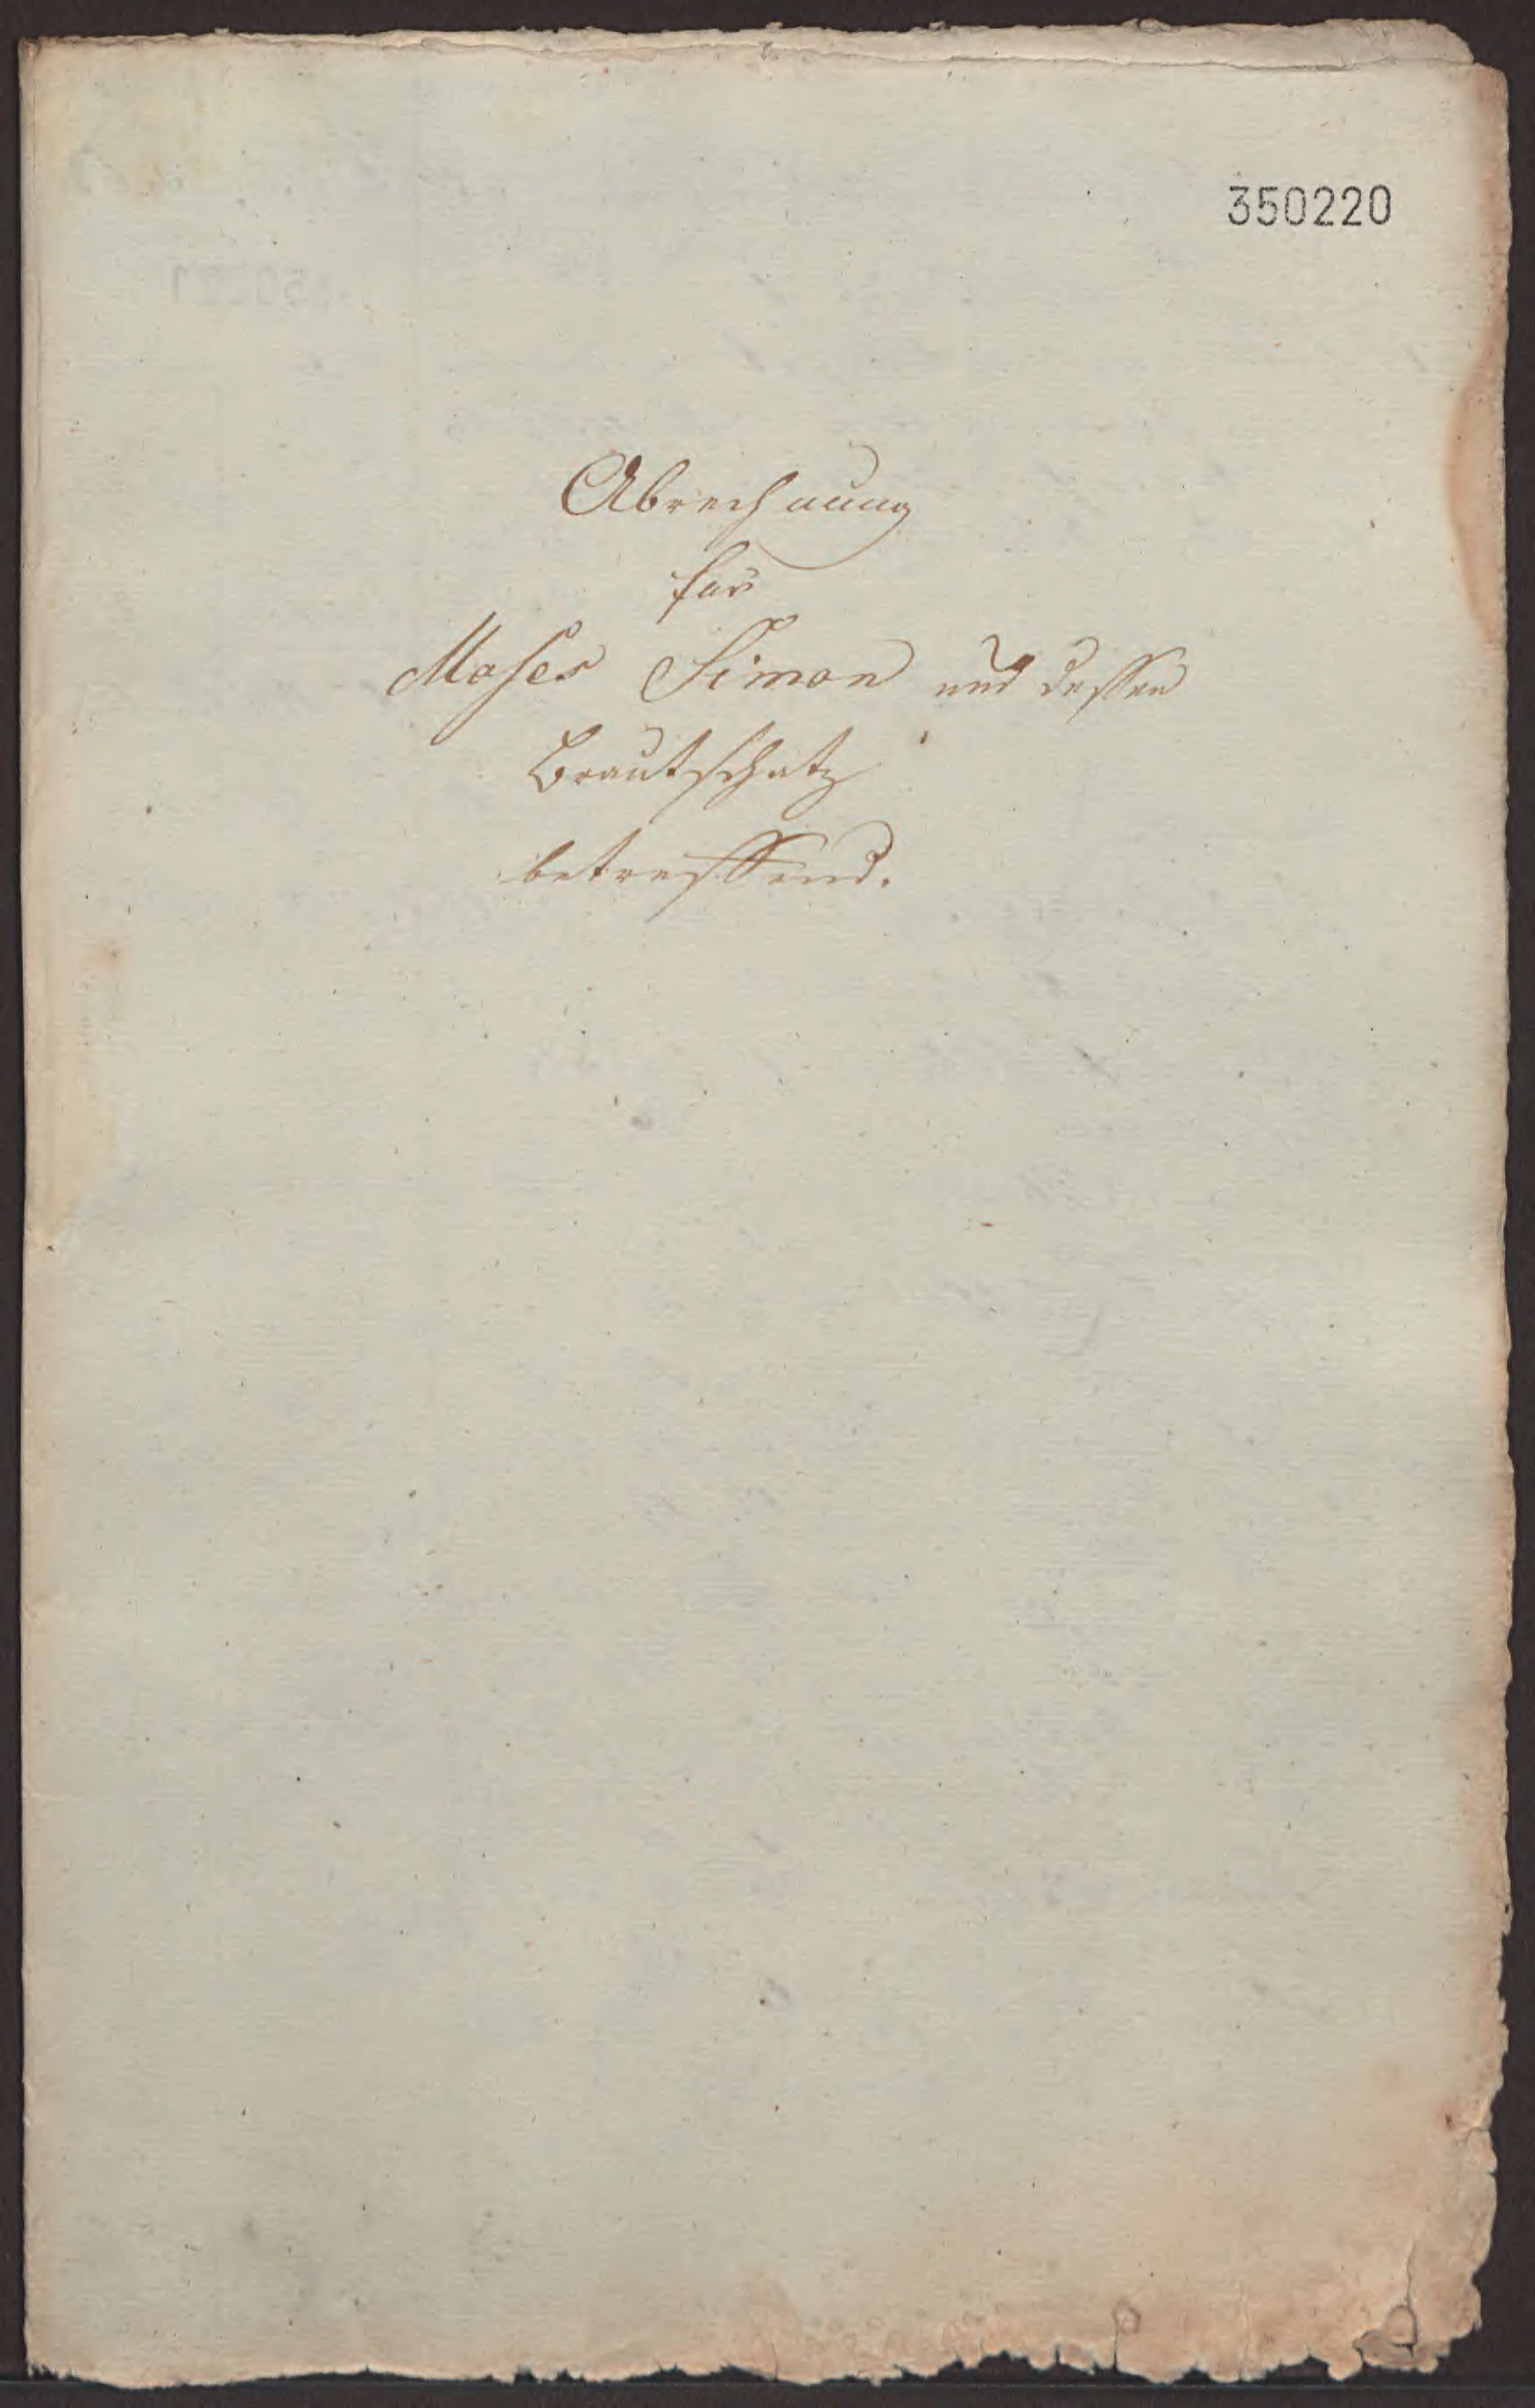 350220
Abrechnung
für
Moses Simon und dessen
Brautschatz
betreffend.